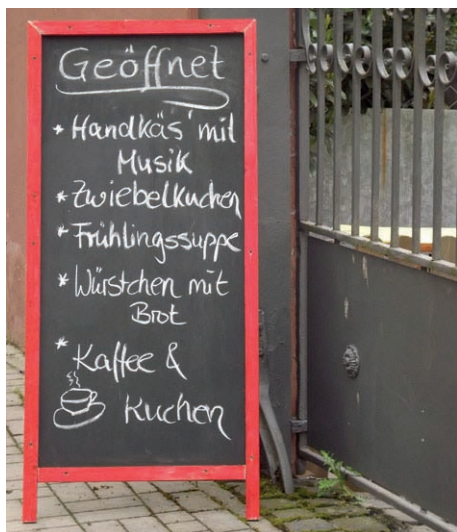 Geöffnet
* Handkäs' mit
Musik
* Zwiebelkuchen
* Frühlingssuppe
* Würstchen mit
Brot
* Kaffee &
Kuchen